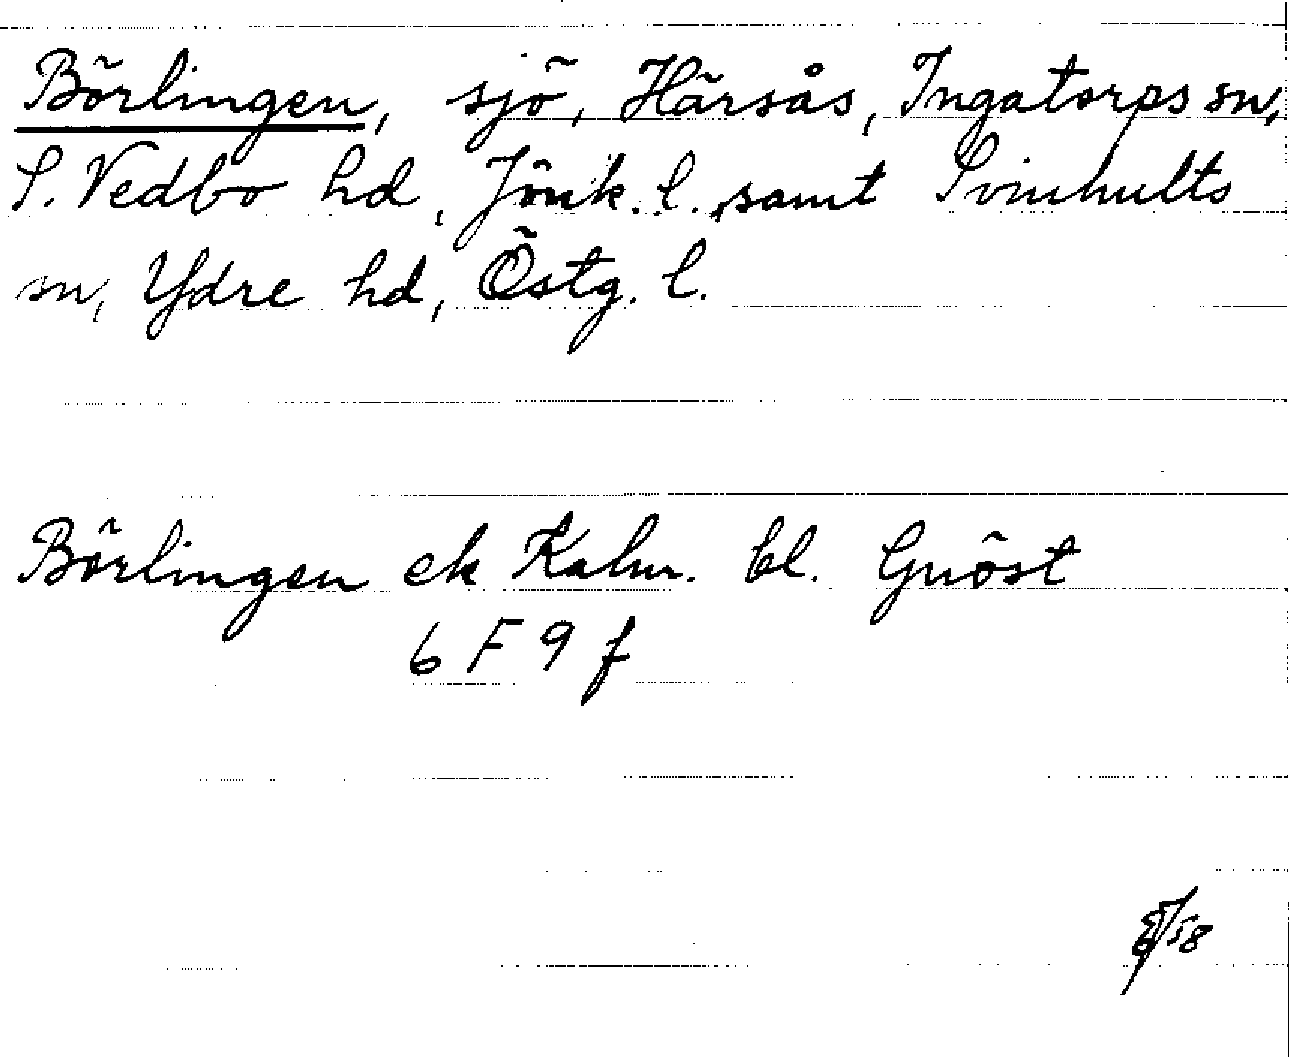 Börlingen, sjö, Härsås, Ingatorps sn,
S. Vedbo hd, Jönk. l. samt Svinhults
sn, Ydre hd, Östg. l.
Börlingen ek Kalm. bl. Gnöst
6 F 9 f
58